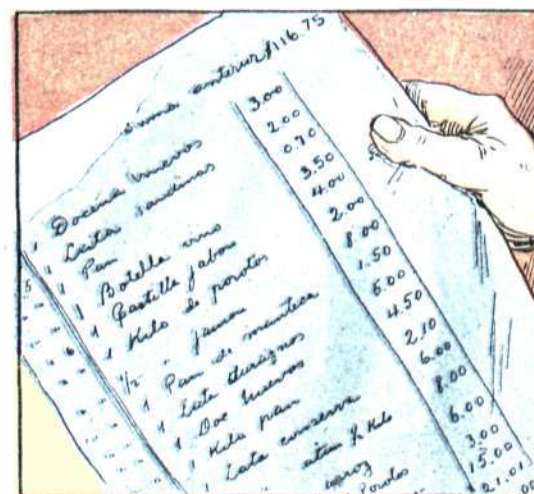 Suma anterior $116.75
1 Docena huevos 3.00
Latas sardinas 2.00
Pan 0.70
1 Botella vino 3.50
1 Pastilla jabon 4.00
1 Kilo de porotos 2.00
1/2 " jamon 8.00
1 Pan de manteca 1.50
1 Lata duraznos 6.00
1 Doc huevos 4.50
1 Kilo pan 2.10
1 Lata conserva 6.00
½ Kilo 8.00
arroz 6.00
Porotos 3.00
15.00
21.01